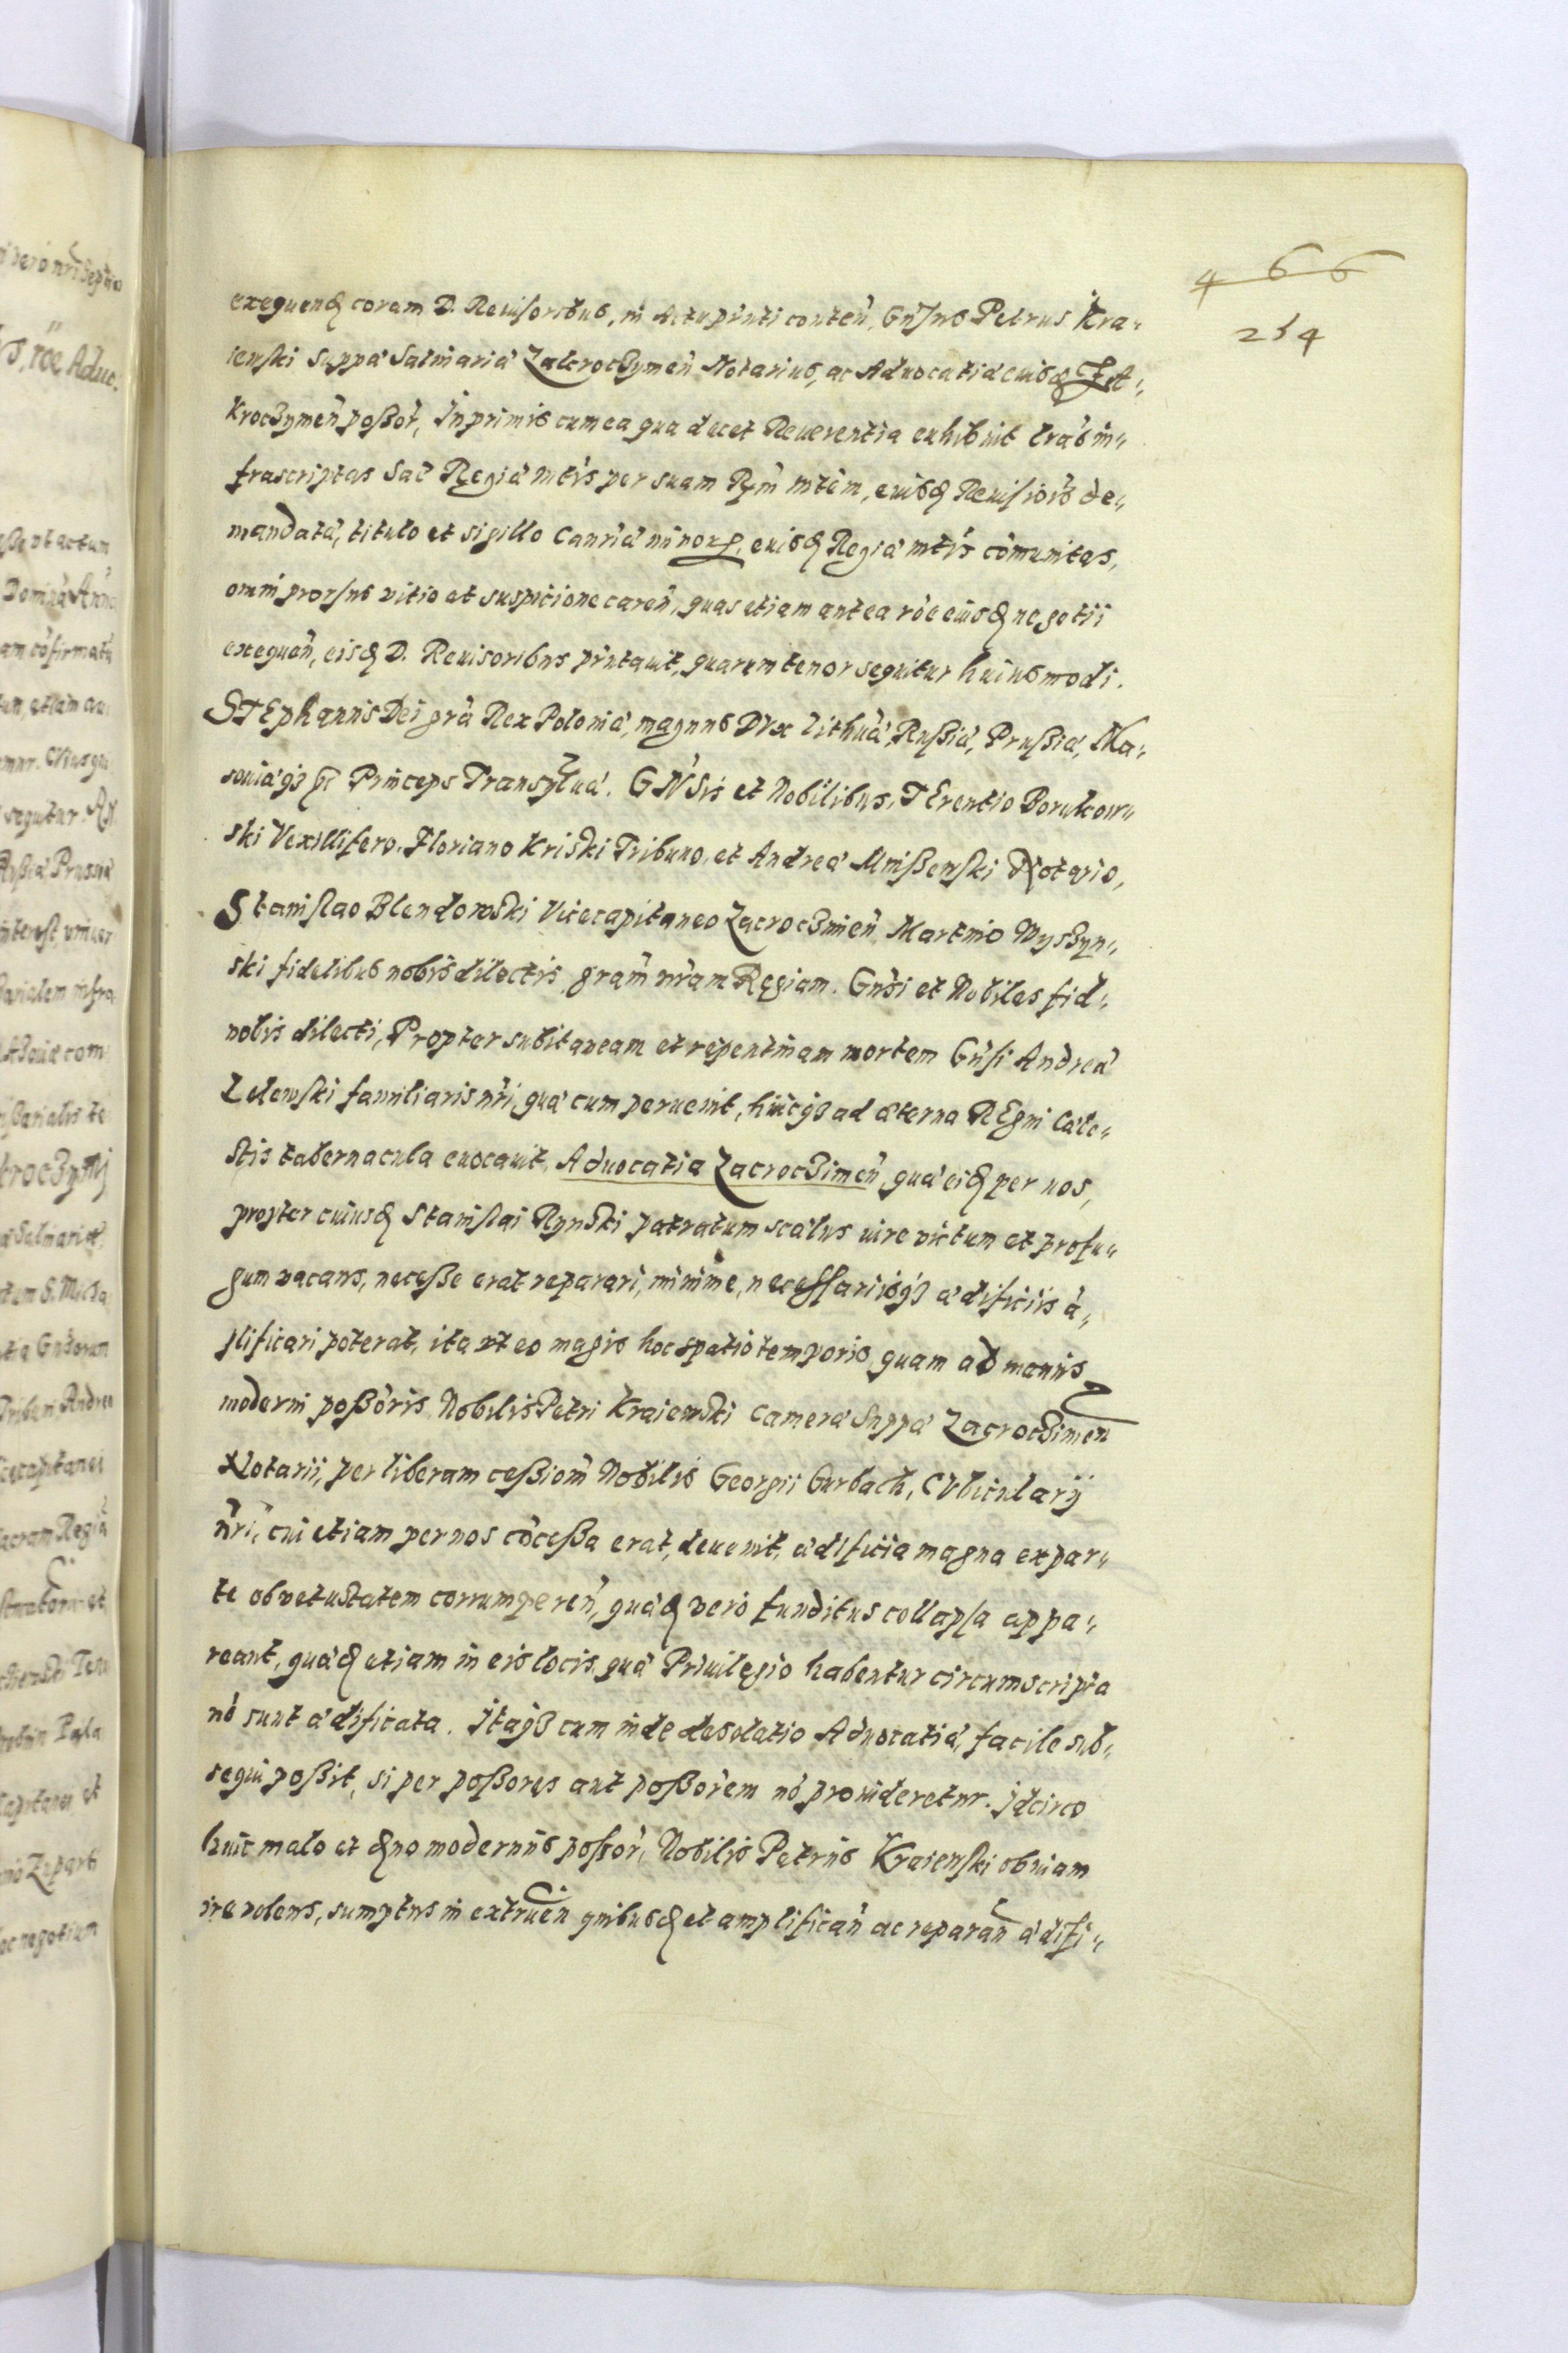 4 6 6
254
exequend coram D. Reuisoribus, in Actu pñti conteñ, Gñsus Petrus Kra-
ienski Suppæ Salinariæ Zakroczymeñ Notarius, ac Aduocatiæ eiusd ZA-
kroczymeñ poßor, Inprimis cum ea qua decet Reuerentia exhibuit lras in-
frascriptas Sac Regiæ mtis per suam Rm mtem, eiusd Reuisiois de-
mandatæ, titulo et sigillo Canriæ minorum, eiusd Regiæ mtis comunitas,
omni prorsus vitio et suspicione careñ, quas etiam antea roe eiusd negotii
exequeñ, eisd D. Reuisoribus pñtauit, quarum tenor sequitur huiusmodi.
STEphanus Dei gra Rex Poloniæ, magnus Dux Lithuæ, Rußiæ, Prußiæ, Ma-
souiæ qz Princeps Transylua. GNSis et Nobilibus, TErentio Borukow-
ski Vexillifero, Floriano Kriski Tribuno, et Andreæ Mnißenski Notario,
Stanislao Blendowski Vicecapitaneo Zacroczimeñ Martino Wyszyn-
ski fidelibus nobis dilectis gram nram Regiam. Gnsi et Nobiles fid-
nobis dilecti, Propter subitaneam et repentinam mortem Gnsi Andreæ
Zelewski familiaris nri, quæ cum peruenit, huncqz ad æterna REgni Cæle-
stis tabernacula euocauit, Aduocatia Zacroczimeñ, quæ eid per nos,
propter cuiusd Stanislai Rynski patratum scælus iure victum et profu-
gum vacans, necesse erat reparari, minime, necessariisqz ædificiis a-
plificari poterat, ita vt eo magis hoc spatio temporis, quam ad manus
moderni poßoris Nobilis Petri Kraiewski Cameræ Suppæ Zacroczimeñ
Notarii, per liberam ceßiom Nobilis Georgii Gurbach, CVbicularij
nri, cui etiam per nos coceßa erat, deuenit, ædificia magna ex par-
te ob vetustatem corrumpereñ, quæd vero funditus collapsa appa-
reant, quæd etiam in eis locis, quæ Priuilegio habentur circumscripta
no sunt ædificata. Itaqz cum inde desolatio Aduocatiæ, facile sub-
sequi poßit, si per poßores aut poßorem no prouideretur. Idcirco
huic malo et dno modernus poßor, Nobilis Petrus Kraienski obuiam
ire volens, sumptus in extrueñ quibusd et amplificañ ac reparañ ædifi-